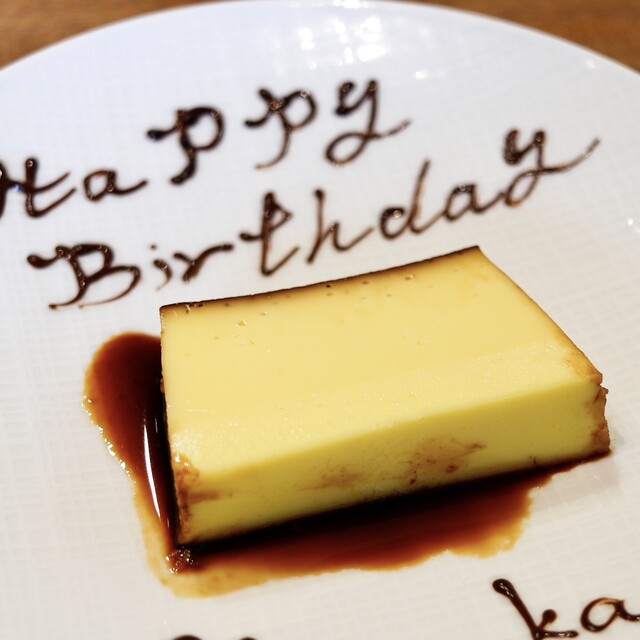 Happy
Birthday
ka